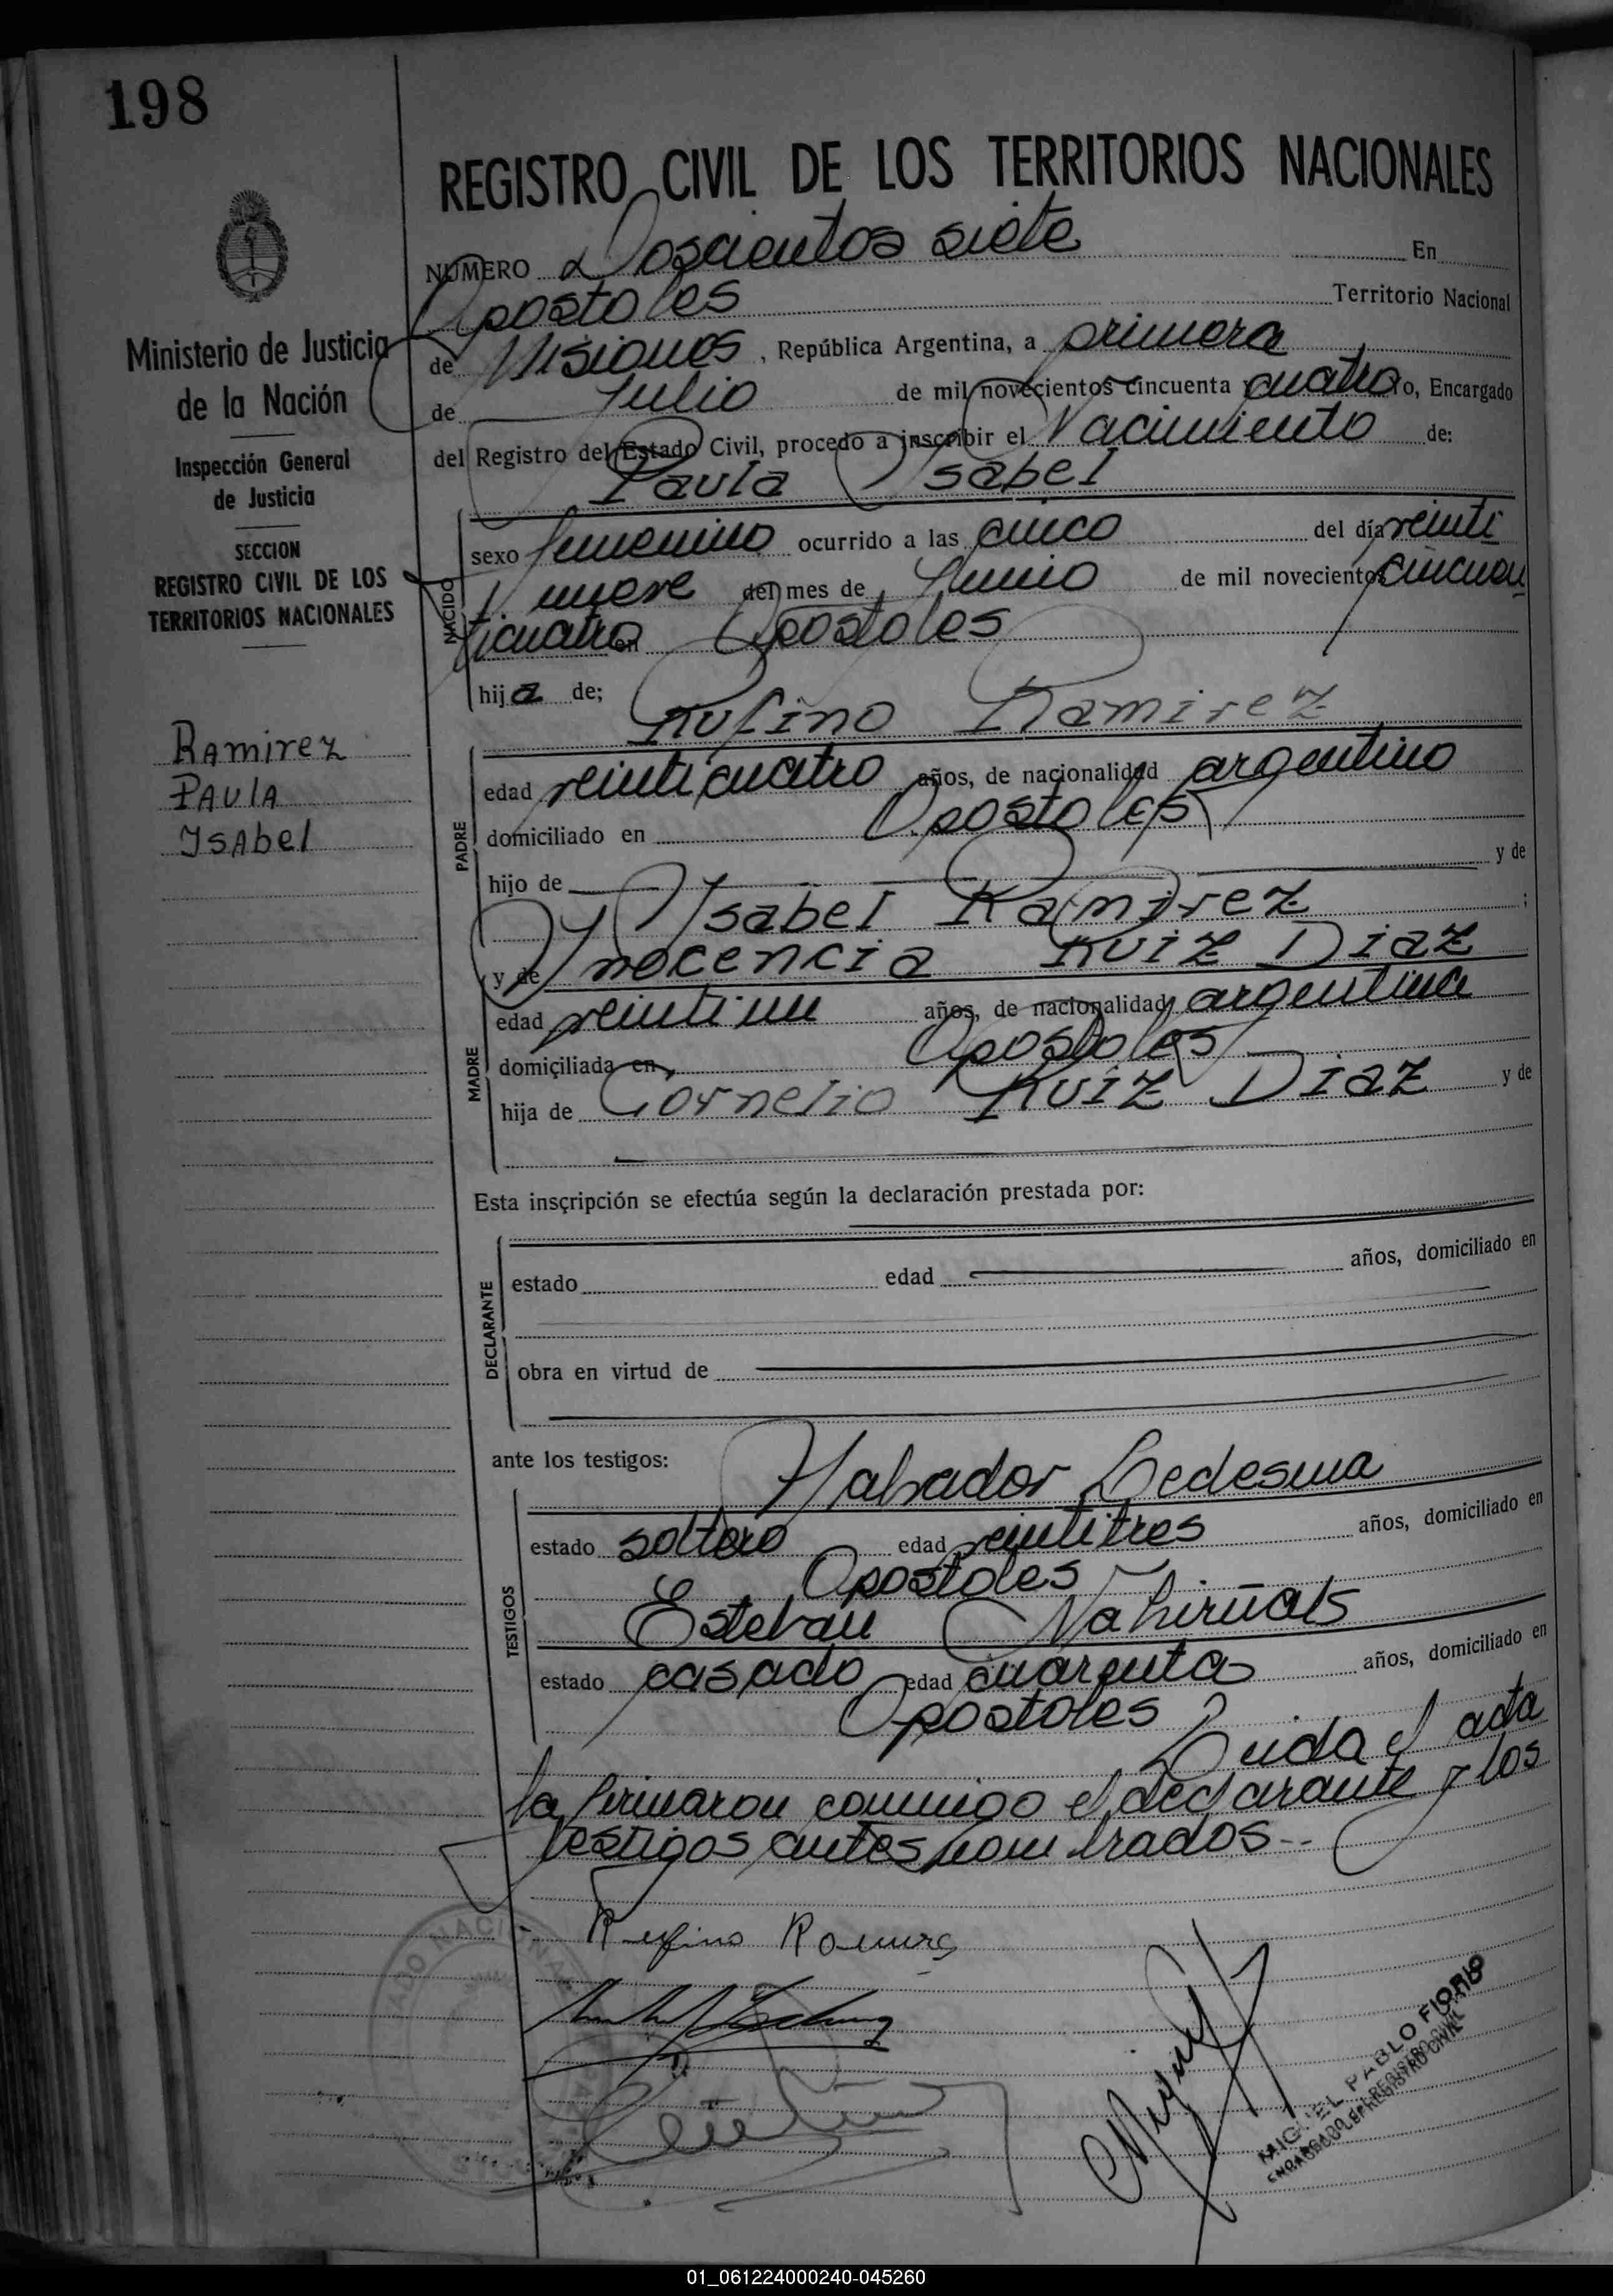 198
REGISTRO CIVIL DE LOS TERRITORIOS NACIONALES
NUMERO Doscientos siete En
Apostoles Territorio Nacional
de Misiones, República Argentina, a primero
de Julio de mil novecientos cincuenta y cuatro o, Encargado
del Registro del Estado Civil, procedo a inscribir el Nacimiento de:
Paula Isabel
Ministerio de Justicia
de la Nación
Inspección General
de Justicia
SECCION
REGISTRO CIVIL DE LOS
TERRITORIOS NACIONALES
Ramirez
PAULA
YsAbel
NACIDO
sexo femenino ocurrido a las cinco del día veinti
nueve del mes de Junio de mil novecientos cincuen
ticuatro en Apostoles
hija de;
Rufino Ramirez
PADRE
edad veinticuatro años, de nacionalidad argentino
domiciliado en Apostoles
hijo de y de
Ysabel Ramirez ;
y de Ynocencia Ruiz Diaz
MADRE
edad veintiun años, de nacionalidad argentina
domiciliada en Apostoles
hija de Cornelio Ruiz Diaz y de
Esta inscripción se efectúa según la declaración prestada por:
DECLARANTE
estado edad años, domiciliado en
obra en virtud de
ante los testigos:
TESTIGOS
Salvador Ledesma
estado soltero edad veintitres años, domiciliado en
Apostoles
Esteban
estado casado edad cuarenta años, domiciliado en
Apostoles
Leida el acta
la firmaron conmigo el declarante y los
testigos antes nombrados..
Rufino Ramirez
MIGUEL PABLO FIORIO
ENCARGADO DEL REGISTRO CIVIL
01_061224000240-045260